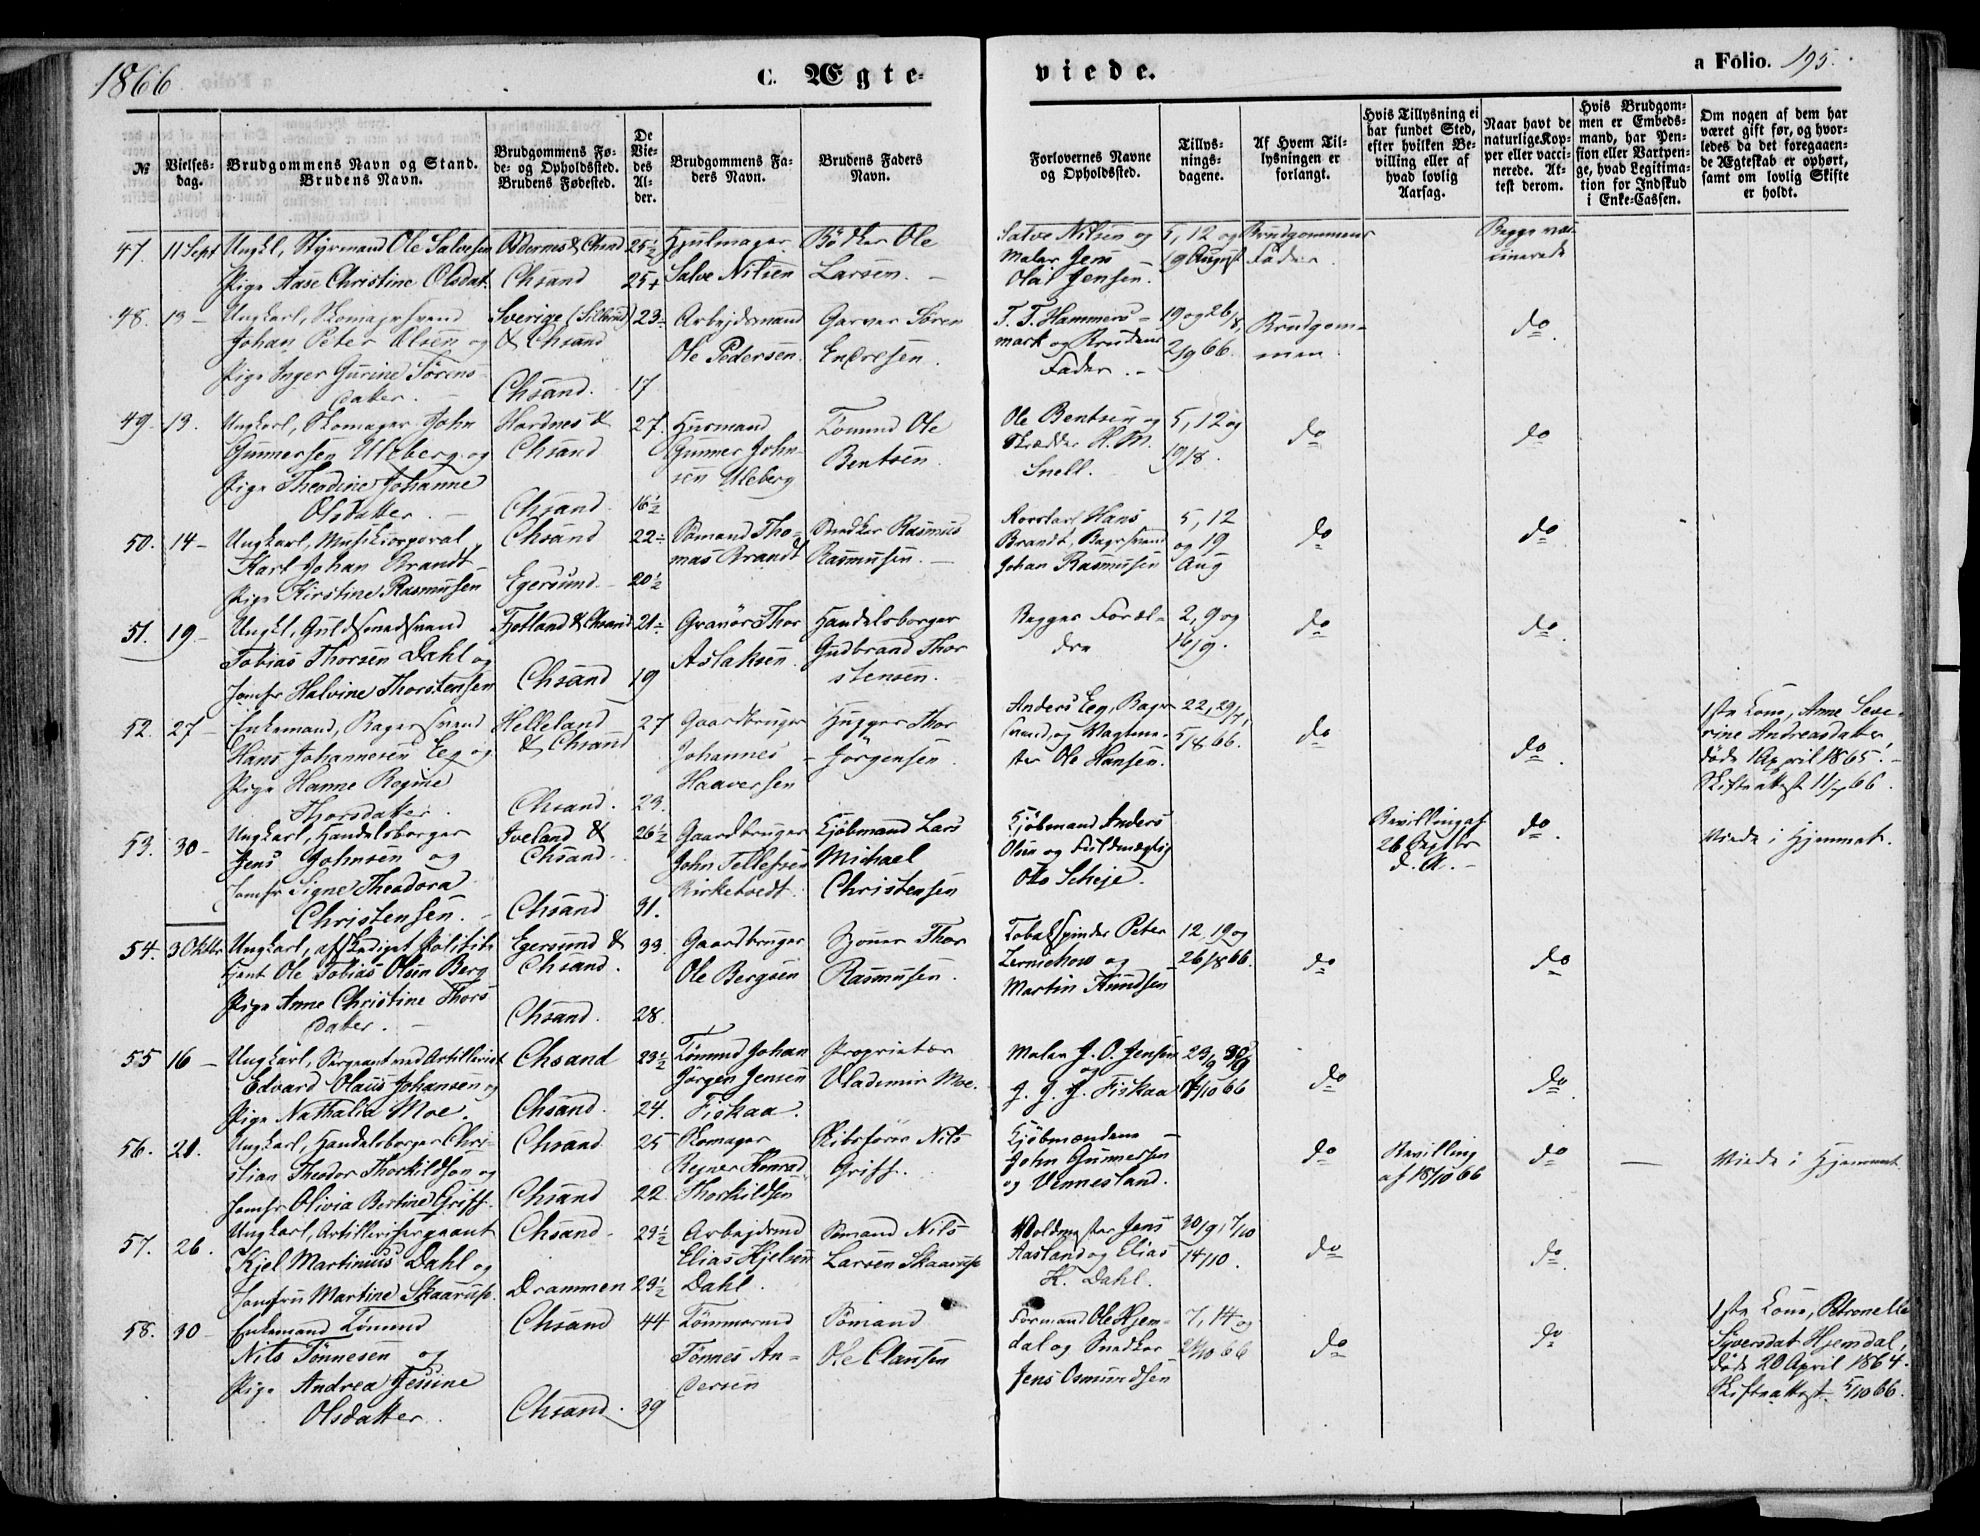 1866
C. Ægte-
viede.
a Folio. 195.
№
Vielses-
dag.
Brudgommens Navn og Stand.
Brudens Navn.
Brudgommens Fø-
de- og Opholdssted.
Brudens Fødested.
De
Vie-
des
Al-
der.
Brudgommens Fa-
ders Navn.
Brudens Faders
Navn.
Forlovernes Navne
og Opholdssted.
Tillys-
nings-
dagene.
Af Hvem Til-
lysningen er
forlangt.
Hvis Tillysning ei
har fundet Sted,
efter hvilken Be-
villing eller af
hvad lovlig
Aarsag.
Naar havt de
naturlige Kop-
per eller vacci-
nerede. At-
test derom.
Hvis Brudgom-
men er Embeds-
mand, har Pen-
sion eller Vartpen-
ge, hvad Legitima-
tion for Indskud
i Enke-Cassen.
Om nogen af dem har
været gift før, og hvor-
ledes da det foregaaen-
de Ægteskab er ophørt,
samt om lovlig Skifte
er holdt.
47. 11 Sept Ungkl, Styrmand Ole Salvesen
Pige Aase Christine Olsdat.
Oddernes & Chsand
Chsand
25½
25+
Hjulmager
Salve Nilsen
Bødker Ole
Larsen. –
Salve Nilsen og
Maler Jens
Olai Jensen.
5, 12 og
19 August
Brudgommens
Fader.
Begge vac-
cinerede
48. 13 – Ungkarl, Skomagersvend
Johan Peter Olsen og
Pige Inger Gurine Sørens-
datter. –
Sverige
& Chsand
Chsand.
23
17
Arbejdsmand
Ole Pedersen.
Garver Søren
Endresen.
T. T. Hammers-
mark og Brudens
Fader. –
19 og 26/8,
2/9 66.
Brudgom-
men.
do
49. 13. Ungkarl, Skomager John
Gunnersen Uleberg og
Pige Theodine Johanne
Olsdatter. –
Hordnes &
Chsand
Chsand.
27.
16½
Husmand
Gunner John-
sen Uleberg
Tømmd Ole
Bentsen.
Ole Bentsen og
Skrædder H. M.
Snell.
5, 12 og
19/8.
do
do
50. 14 – Ungkarl, Musikkorporal
Karl Johan Brandt
Pige Kirstine Rasmusen
Chsand
Egersund. –
22
20½
Sømand Tho-
mas Brandt
Snedker Rasmus
Rasmusen. –
Hans
Brandt, Bagersvend
Johan Rasmusen
5, 12
og 19
Aug
do
do
51. 19. – Ungkl, Guldsmedsvend
Tobias Thorsen Dahl og
Jomfr Halvine Thorstensen
Fjotland & Chsand
Chsand
21
19
Gravør Thor
Aslaksen.
Handelsborger
Gudbrand Thor
stensen.
Begges Foræl-
dre
2, 9 og
16/9.
do
do
52. 27 – Enkemand, Bagersvend
Hans Johannesen Eeg og
Pige Hanne Regine
Thorsdatter.
Helleland
& Chsand
Chsand.
27
23.
Gaardbruger
Johannes
Haaversen
Hugger Thor
Jørgensen.
Anders Eeg, Bager
svend, og Vagtme-
ster Ole Hansen.
22, 29/7,
5/8 66.
do
do.
1ste Kone, Anne Seve-
rine Andreasdatter,
døde 1 April 1865. –
Skifteattest 11/7 66.
53. 30 – Ungkarl, Handelsborger
Jens Johnsen og
Jomfr Signe Theodora
Christensen. –
Iveland &
Chsand.
Chsand
26½
31.
Gaardbruger
John Tellefsen
Birketvedt.
Kjøbmand Lars
Michael
Christensen
Kjøbmand Anders
Olsen og Fuldmægtig
Otto Scheje.
Bevilling af
26 Septbr
d. A. –
do.
Viede i Hjemmet.
54. 3 Oktbr Ungkarl, afskediget Politib-
tjent Ole Tobias Olsen Berg
Pige Anne Christine Thors
datter. –
Egersund &
Chsand.
Chsand.
33.
28.
Gaardbruger
Ole Bergsen
Thor
Rasmusen.
Tobakspinder Peter
Zernichow og
Martin Knudsen
12, 19 og
26/8 66.
do
do
55 16 – Ungkarl, Sergeant ved Artilleriet
Edvard Olaus Johansen og
Pige Nathalia Moe.
Chsand
Chsand.
23½
24.
Tømmd Johan
Jørgen Jensen
Fiskaa.
Proprietær
Vlademir Moe.
Maler J. O. Jensen
og
J. J. J. Fiskaa
23/9 30/9
7/10 66
do
do.
56. 21. Ungkarl, Handelsborger Chri-
stian Theodor Thorkildsen og
Jomfr Olivia Bertine Griff.
Chsand
Chsand
25
22.
Skomager
Rejner Konrad
Thorkildsen
Skibsfører Nils
Griff.
Kjøbmændene
John Gunnersen
og Vennesland.
do
Bevilling
af 18/10 66
do
—
Viede i Hjemmet
57. 26. Ungkarl, Artillerisergeant
Kjel Martinius Dahl og
Jomfru Martine Skaarup.
Chsand.
Drammen
23½
23½
Arbejdsmd
Elias Kjelsen
Dahl.
Sømand Nils
Larsen Skaarup
Voldmester Jens
Aasland og Elias
K. Dahl.
30/9, 7/10
14/10.
do
do.
58. 30 – Enkemand Tømmd
Nils Tønnesen og
Pige Andrea Jesine
Olsdatter.
Chsand
Chsand.
44
39
Tømmermd
Tønnes An-
dersen
Sømand
Ole Clausen
Formand Ole Hjem-
dal og Snedker
Jens Osmundsen
7, 14 og
21/10 66
do
do
1ste Kone, Petronelle
Syversdat Hjemdal,
døde 20 April 1864.
Skifteattest 5/10 66.